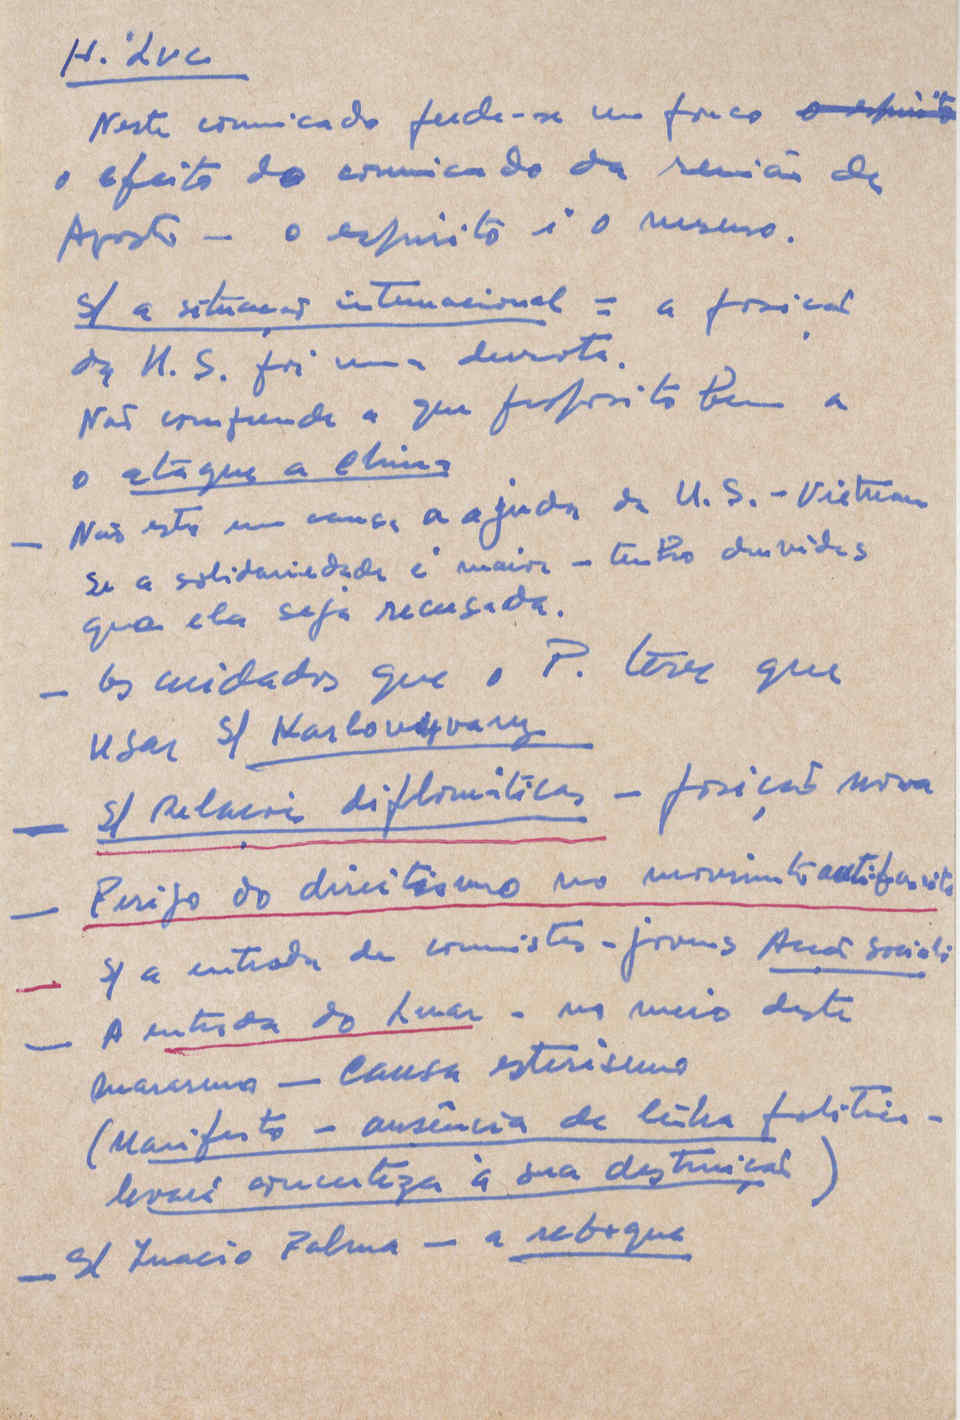 Neste comunicado perde-se um pouco o espirito
o efeito do comunicado da reunião de
Agosto — o espirito é o mesmo.
S/ a situação internacional = a posição
da U.S. foi uma derrota.
Não compreende a que proposito tem a
o ataque a China
— Não esta em causa a ajuda da U.S. - Vietnam
se a solidariedade é maior - tenho duvidas
que ela seja recusada.
— Os cuidados que o P. teve que
usar S/ Karlovyvary
— S/ Relações diplomáticas — posição nova
— Perigo do direitismo no movimento antifascista
— S/ a entrada de comunistas - jovens Acção sociali
— A entrada do Lmar - no meio deste
marasmo — causa esterismo
(Manifesto — ausência de linha politica -
levará concerteza à sua destruição)
— S/ Inacio Palma — a reboque